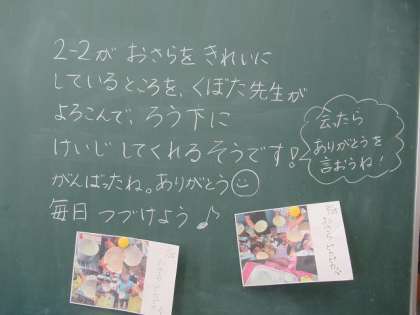 2-2が おさらを きれいに
しているところを、くぼた先生が
よろこんで、ろう下に
けいじ してくれるそうです!
がんばったね。ありがとう
毎日 つづけよう♪
会ったら
ありがとうを
言おうね!